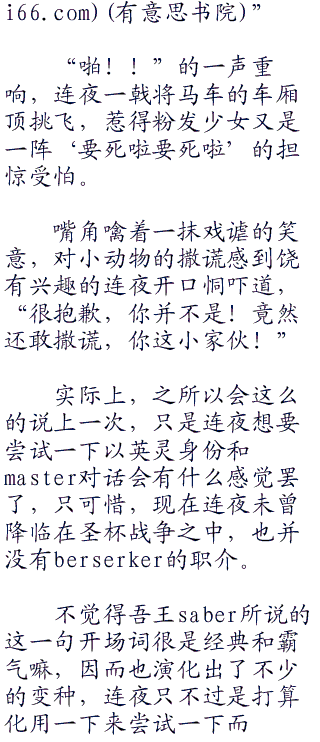 i66.com)(有意思书院)”
“啪！！”的一声重
响，连夜一戟将马车的车厢
顶挑飞，惹得粉发少女又是
一阵‘要死啦要死啦’的担
惊受怕。
嘴角噙着一抹戏谑的笑
意，对小动物的撒谎感到饶
有兴趣的连夜开口恫吓道，
“很抱歉，你并不是！竟然
还敢撒谎，你这小家伙！”
实际上，之所以会这么
的说上一次，只是连夜想要
尝试一下以英灵身份和
master对话会有什么感觉罢
了，只可惜，现在连夜未曾
降临在圣杯战争之中，也并
没有berserker的职介。
不觉得吾王saber所说的
这一句开场词很是经典和霸
气嘛，因而也演化出了不少
的变种，连夜只不过是打算
化用一下来尝试一下而